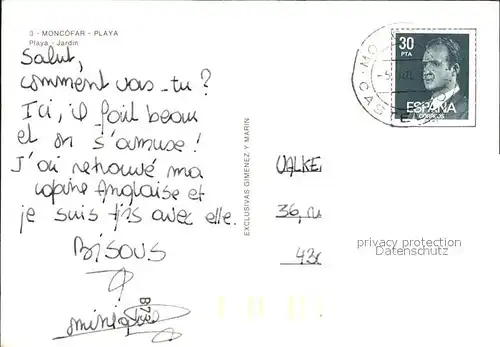 3 - MONCÓFAR - PLAYA
Playa - Jardin
Salut,
comment vas-tu?
Ici, il fait beau
et on s'amuse!
J'ai retrouvé ma
copine Anglaise et
je suis tjs avec elle.
BISOUS
EXCLUSIVAS GIMENEZ Y MARIN
30
PTA
ESPAÑA
CORREOS
VALKE
36, ru
43
privacy protection
Datenschutz